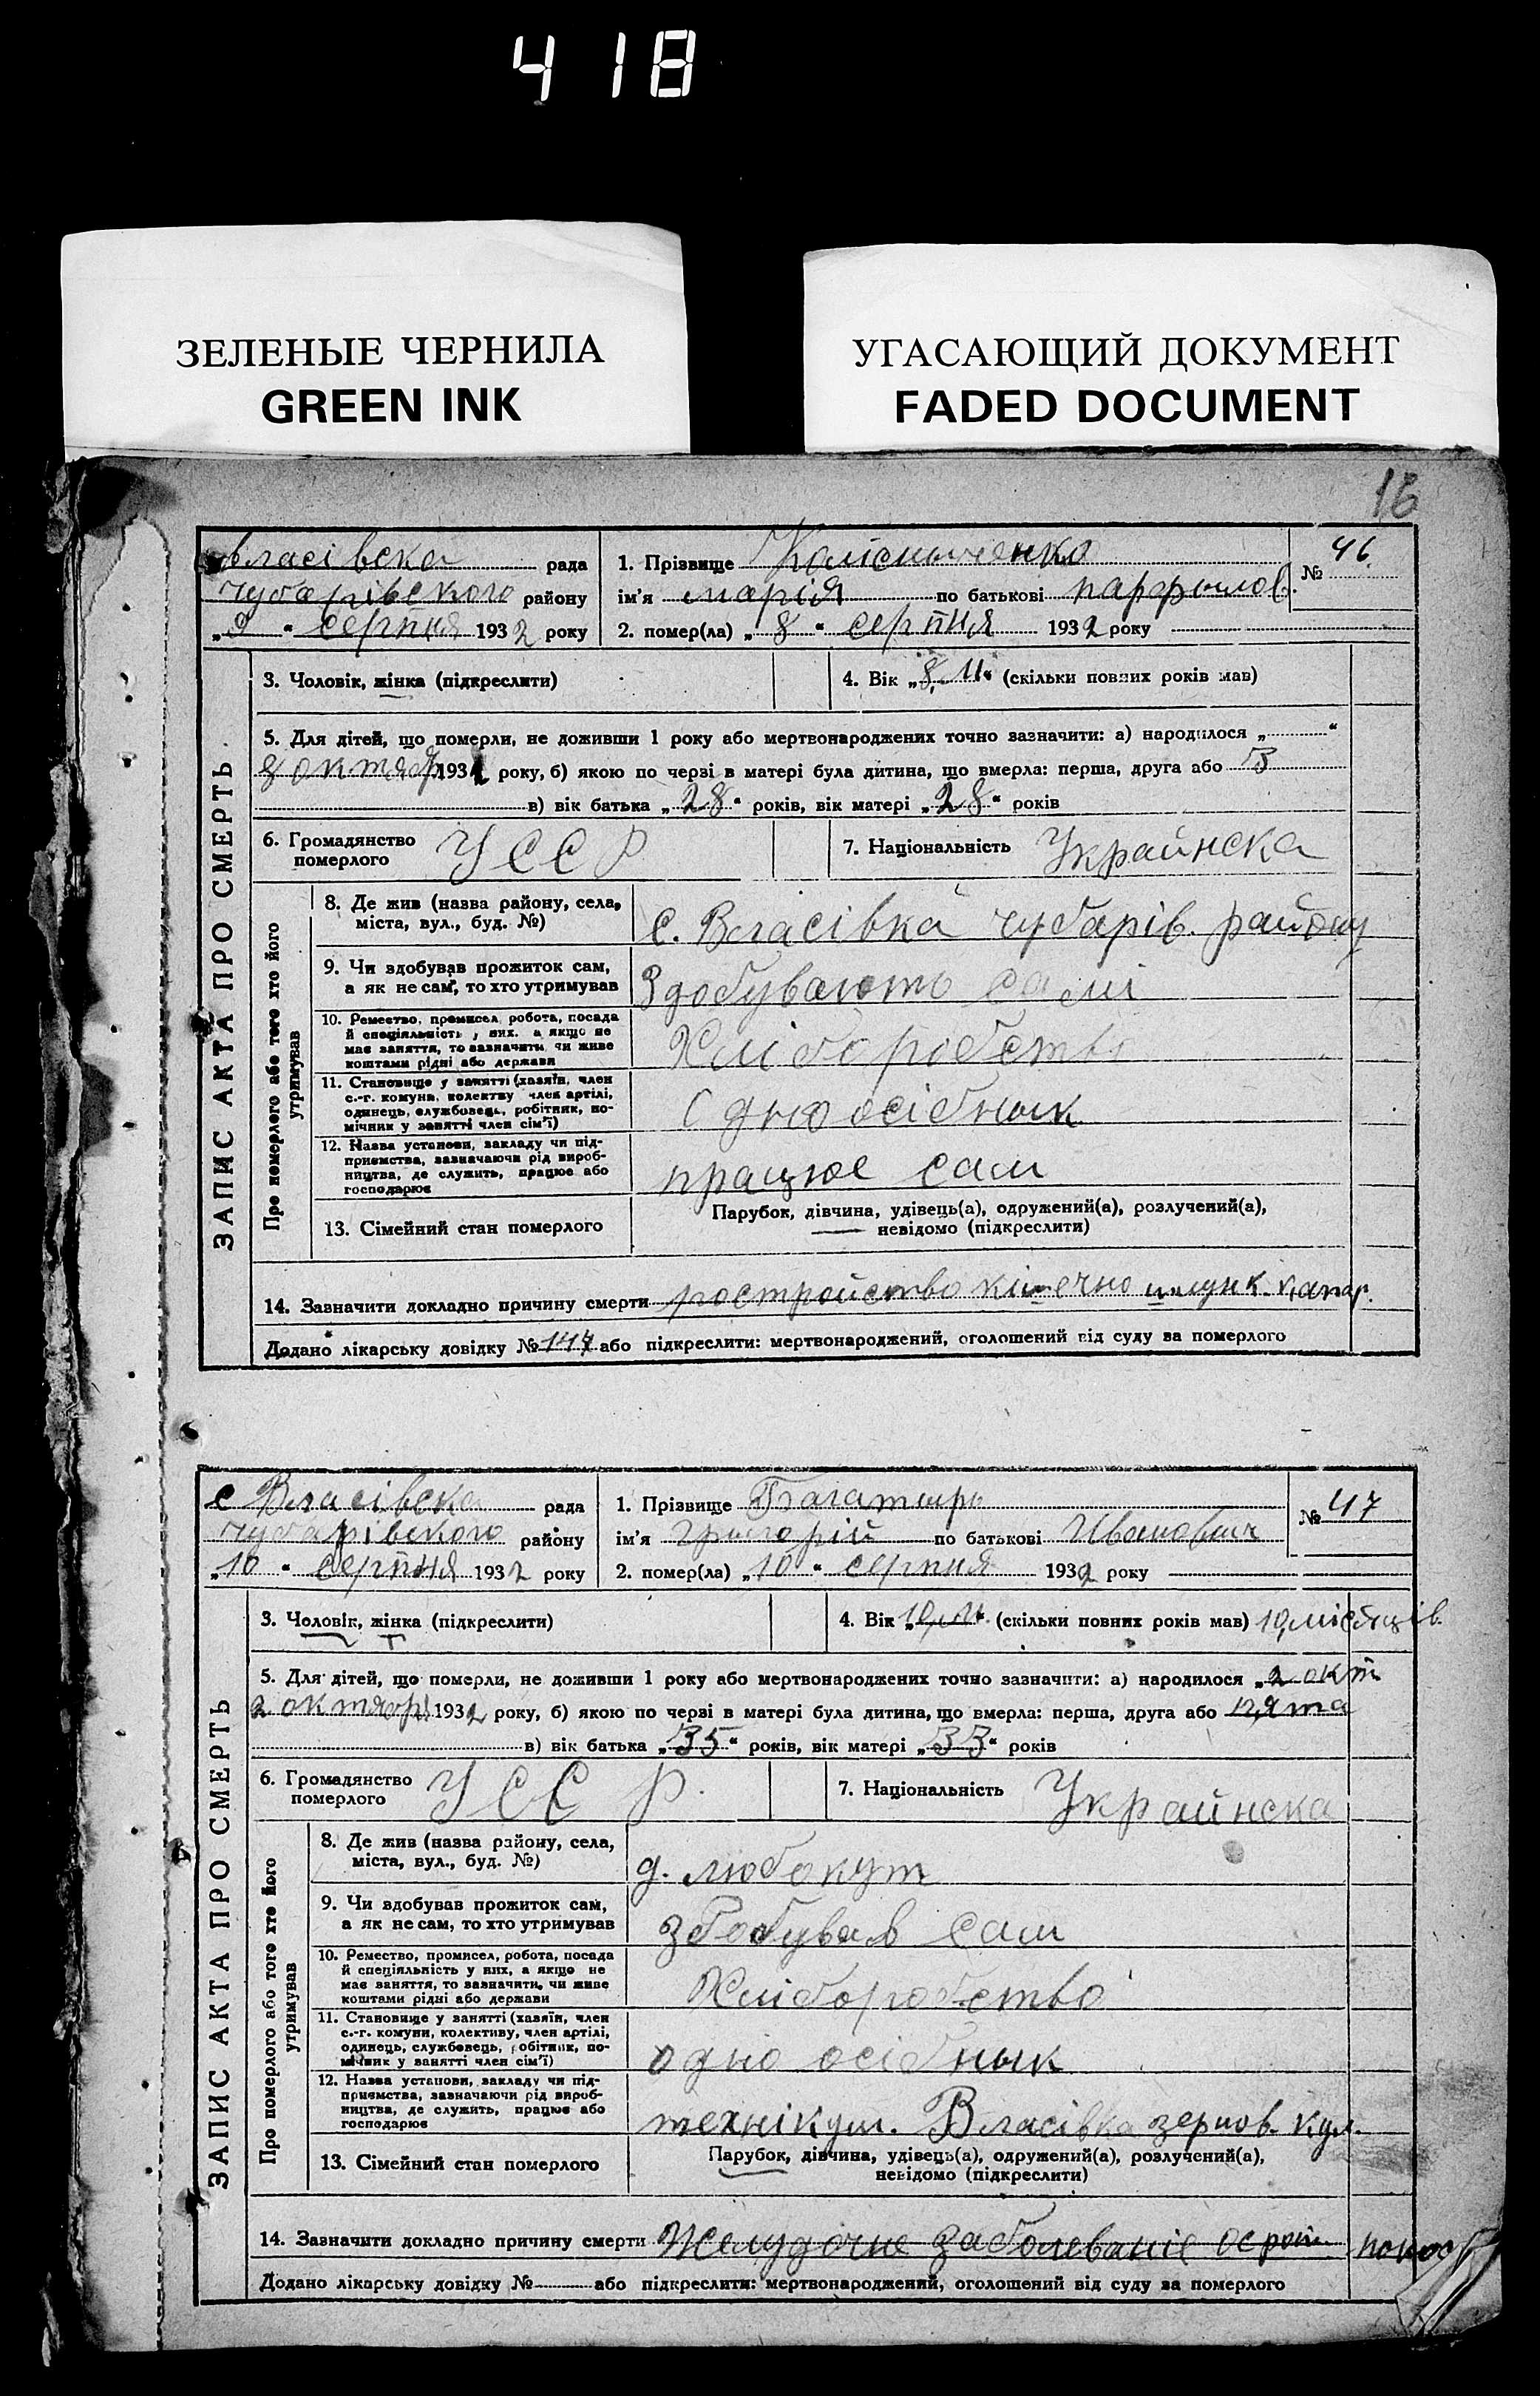 418
ЗЕЛЕНЫЕ ЧЕРНИЛА
GREEN INK
УГАСАЮЩИЙ ДОКУМЕНТ
FADED DOCUMENT
16
ЗАПИС АКТА ПРО СМЕРТЬ
Власівска рада
чубарівского району
„9“ серпня 1932 року
1. Прізвище
ім'я марія по батькові парфылов.
2. помер(ла) „8“ серпня 1932 року
№ 46
3. Чоловік, жінка (підкреслити)
4. Вік „8. м“ (скільки повних років мав)
5. Для дітей, що померли, не доживши 1 року або мертвонароджених точно зазначити: а) народилося „ “
8 октяб 1931 року, б) якою по черзі в матері була дитина, що вмерла: перша, друга або 3
в) вік батька „28“ років, вік матері „28“ років
6. Громадянство
померлого
УССР
7. Національність Украинска
Про померлого або того хто його
утримував
8. Де жив (назва району, села,
міста, вул., буд. №)
с. Власівка чубарів. району
9. Чи здобував прожиток сам,
а як не сам, то хто утримував
Здобувають самі
10. Ремество, промисел, робота, посада
й спеціяльність у них, а якщо не
має заняття, то зазначити чи живе
коштами рідні або держави
Хліборобство
11. Становище у занятті (хазяїн, член
с.-г. комуни, колективу член артілі,
одинець, службовець, робітник, по-
мічник у занятті член сім'ї)
Одноосібнык
12. Назва установи, закладу чи під-
приємства, зазначаючи рід вироб-
ництва, де служить, працює або
господарює
працюе сам
13. Сімейний стан померлого
Парубок, дівчина, удівець(а), одружений(а), розлучений(а),
невідомо (підкреслити)
14. Зазначити докладно причину смерти ростройство кішечно шлунк. катар.
Додано лікарську довідку № 147 або підкреслити: мертвонароджений, оголошений від суду за померлого
ЗАПИС АКТА ПРО СМЕРТЬ
с Власівска рада
чубарівского району
„10“ серпня 1932 року
1. Прізвище Багатырь
ім'я Григорій по батькові Ивановыч
2. помер(ла) „10“ серпня 1932 року
№ 47
3. Чоловік, жінка (підкреслити)
4. Вік „10, м“ (скільки повних років мав) 10, місяців.
5. Для дітей, що померли, не доживши 1 року або мертвонароджених точно зазначити: а) народилося „2 окт
2 октября 1932 року, б) якою по черзі в матері була дитина, що вмерла: перша, друга або пята
в) вік батька „35“ років, вік матері „33“ років
6. Громадянство
померлого
УССР.
7. Національність Украинска
Про померлого або того хто його
утримував
8. Де жив (назва району, села,
міста, вул., буд. №)
д. любокут
9. Чи здобував прожиток сам,
а як не сам, то хто утримував
здобував сам
10. Ремество, промисел, робота, посада
й спеціяльність у них, а якщо не
має заняття, то зазначити, чи живе
коштами рідні або держави
Хліборобство
11. Становище у занятті (хазяїн, член
с.-г. комуни, колективу, член артілі,
одинець, службовець, робітник, по-
мічник у занятті член сім'ї)
одно осібнык
12. Назва установи, закладу чи під-
приємства, зазначаючи рід вироб-
ництва, де служить, працює або
господарює
технікум. Власівка зернов. кул.
13. Сімейний стан померлого
Парубок, дівчина, удівець(а), одружений(а), розлучений(а),
невідомо (підкреслити)
14. Зазначити докладно причину смерти Желудочне заболеваніе
Додано лікарську довідку № або підкреслити: мертвонароджений, оголошений від суду за померлого